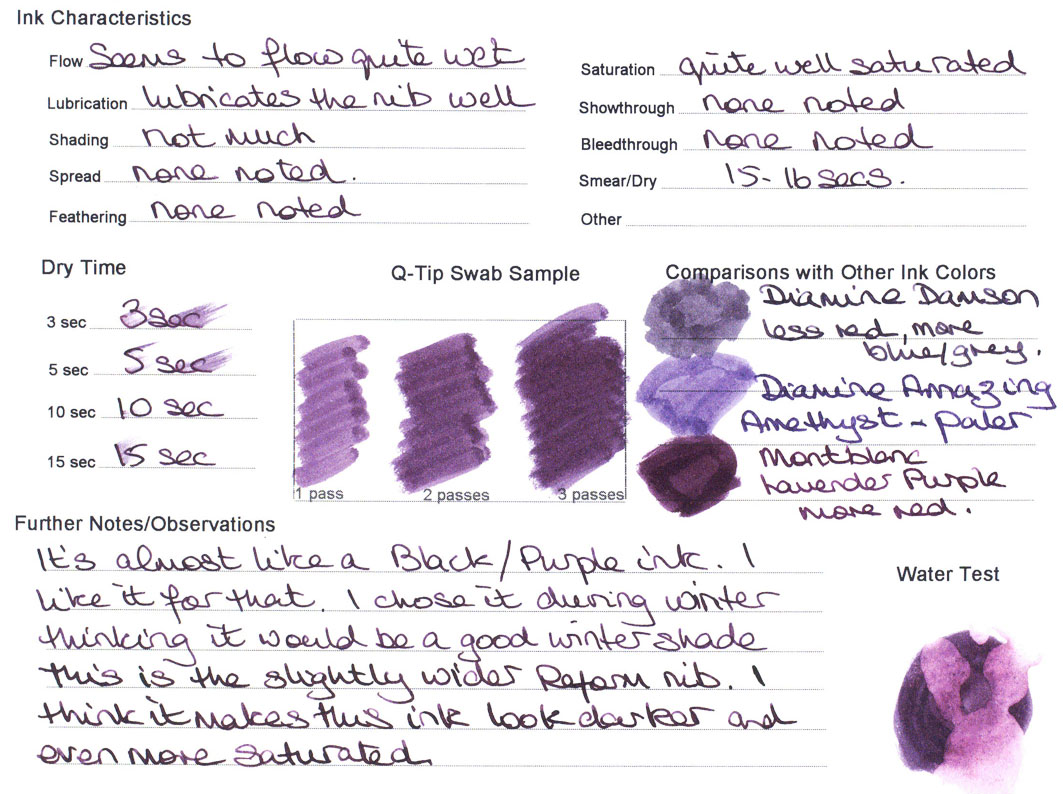 Ink Characteristics
Flow Seems to flow quite wet
Lubrication lubricates the nib well
Shading not much
Spread none noted.
Feathering none noted
Saturation quite well saturated
Showthrough none noted
Bleedthrough none noted
Smear/Dry 15-16 secs.
Other
Dry Time
3 sec 3 sec
5 sec 5 sec
10 sec 10 sec
15 sec 15 sec
Q-Tip Swab Sample
1 pass 2 passes 3 passes
Comparisons with Other Ink Colors
Diamine Damson
less red, more
blue/grey.
Diamine Amazing
Amethyst - paler
Montblanc
Lavender Purple
more red.
Further Notes/Observations
It's almost like a Black/Purple ink. I
like it for that. I chose it during winter
thinking it would be a good winter shade
this is the slightly wider Reform nib. I
think it makes this ink look darker and
even more saturated.
Water Test